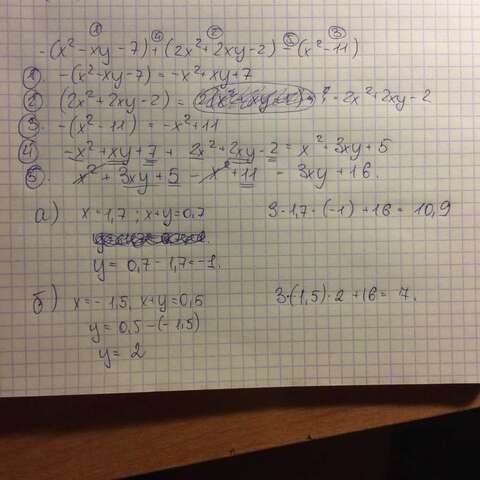 ① ④ ② ⑤ ③
-(x²-xy-7)+(2x²+2xy-2)-(x²-11)
①. -(x²-xy-7)=-x²+xy+7
②. (2x²+2xy-2)= 2x²+2xy-2
③. -(x²-11)=-x²+11
④. -x²+xy+7+2x²+2xy-2=x²+3xy+5
⑤. x²+3xy+5-x²+11 - 3xy+16.
а) x=1,7; x+y=0,7 3·1,7·(-1)+16=10,9
y=0,7-1,7=-1.
б) x=-1,5, x+y=0,5 3·(1,5)·2+16=7.
y=0,5-(-1,5)
y=2